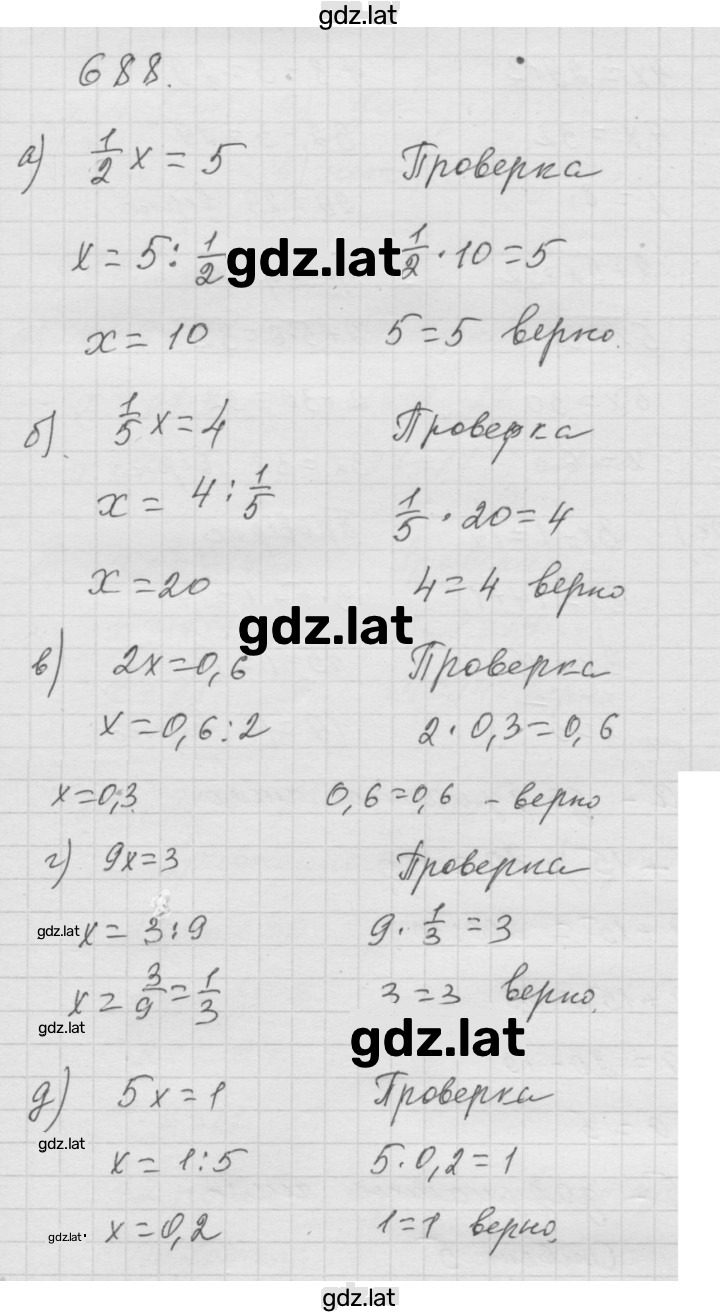 gdz.lat
688.
а) 1/2 x = 5 Проверка
x = 5 : 1/2 gdz.lat 1/2 · 10 = 5
x = 10 5 = 5 верно.
б). 1/5 x = 4 Проверка
x = 4 : 1/5 1/5 · 20 = 4
x = 20 4 = 4 верно
gdz.lat
в) 2x = 0,6 Проверка
x = 0,6 : 2 2 · 0,3 = 0,6
x = 0,3 0,6 = 0,6 - верно
г) 9x = 3 Проверка
gdz.lat x = 3 : 9 9 · 1/3 = 3
x = 3/9 = 1/3 3 = 3 верно.
gdz.lat gdz.lat
д) 5x = 1 Проверка
gdz.lat x = 1 : 5 5 · 0,2 = 1
gdz.lat x = 0,2 1 = 1 верно.
gdz.lat